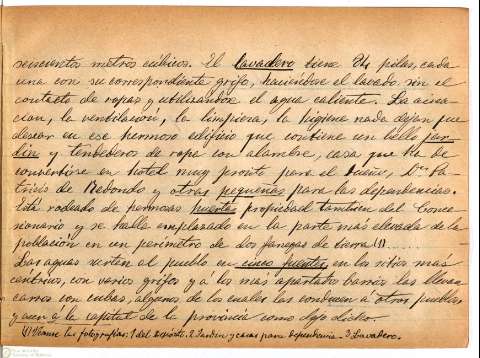 seiscientos metros cúbicos. El lavadero tiene 24 pilas, cada
una con su correspondiente grifo, haciendose el lavado sin el
contacto de ropas y utilizandose el agua caliente. La airea-
cion, la ventilacion, la limpieza, la higiene nada dejan que
desear en ese hermoso edificio que contiene un bello jar-
din y tendederos de ropa con alambre, casa que ha de
convertirse en hotel muy pronto para el dueño, Dn. Pa-
tricio de Redondo y otras pequeñas para las dependencias.
Está rodeado de hermosas huertas propiedad tambien del conce-
sionario y se halla emplazado en la parte mas elevada de la
poblacion en un perimetro de dos fanegas de tierra (1)......
Las aguas surten al pueblo en cinco fuentes, en los sitios mas
centricos, con varios grifos y á los mas apartados barrios las llevan
carros con cubas, algunos de los cuales las conducen a otros pueblos
y aun á la capital de la provincia como dejo dicho.
(1) Véanse las fotografías: 1 del depósito. 2 Jardin y casas para dependencia. 3 Lavaderos.